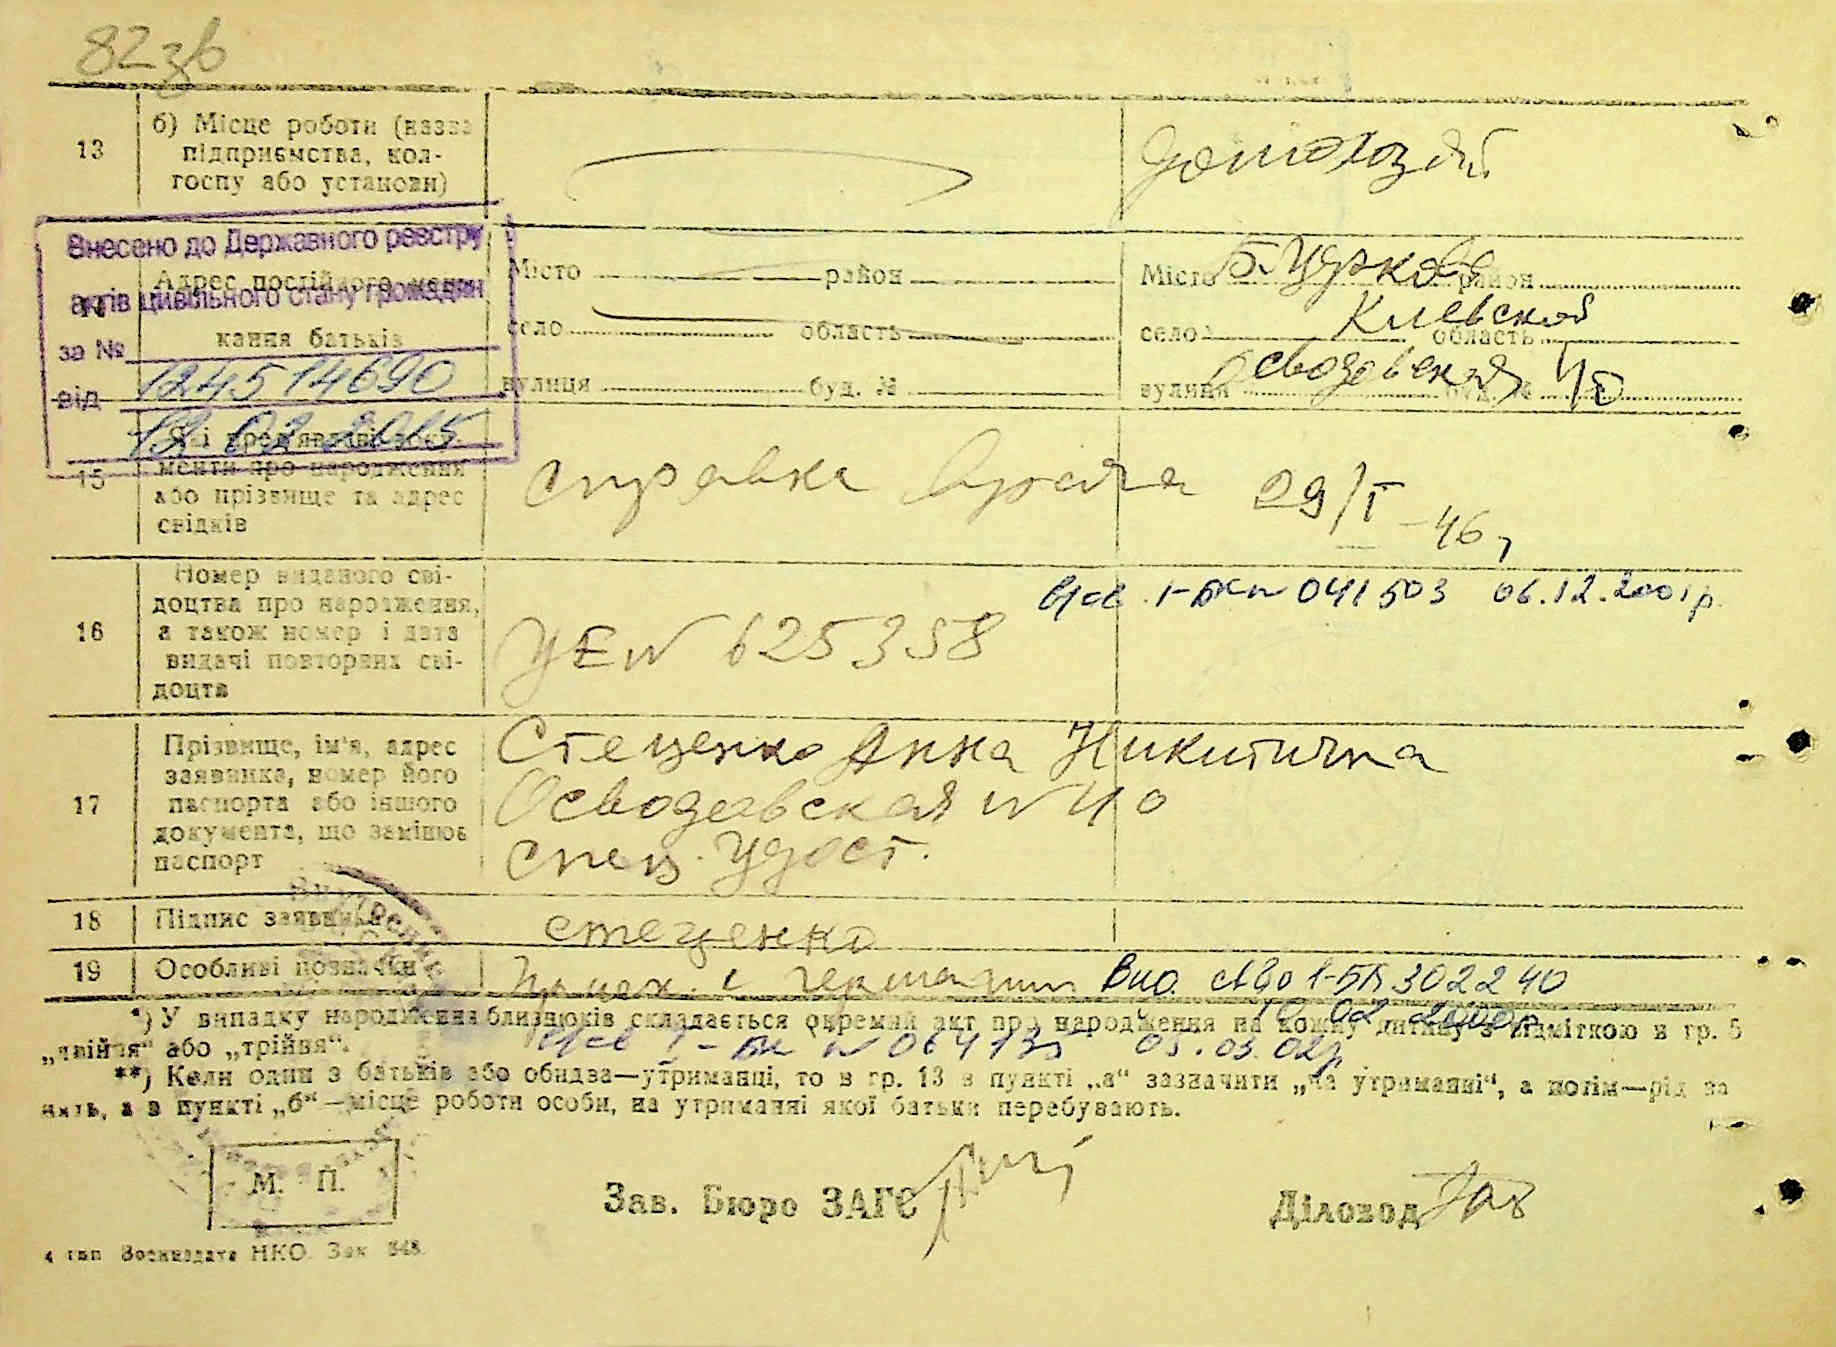 82 зв
13
б) Місце роботи (назва
підприємства, кол-
госпу або установи)
домохоз.
Внесено до Державного реєстру
актів цивільного стану громадян
за № 124514690
від 12 02 2015
Адрес постійного меш-
кання батьків
Місто район
село область
вулиця буд. №
Місто Б. Церковь район
село Киевской область
вулиця Осводовская буд. № 40
15
Які пред'явлені доку-
менти про народження
або прізвище та адрес
свідків
справка врача 29/I -46 г
16
Номер виданого сві-
доцтва про народження,
а також номер і дата
видачі повторних сві-
доцтв
УЕ № 625358
І-БК № 041503 06.12.2001р.
17
Прізвище, ім'я, адрес
заявника, номер його
паспорта або іншого
документа, що замінює
паспорт
Стеценко Анна Никитична
Осводовская № 40
спец. удост.
18
Підпис заявника
стеценко
19
Особливі позначки
Германии Вид. св-во 1-БК 302240
*) У випадку народження близнюків складається окремий акт про народження на кожну дитину з відміткою в гр. 5
„двійня“ або „трійня“.
05.03.02р
**) Коли один з батьків або обидва—утриманці, то в гр. 13 в пункті „а“ зазначити „на утриманні“, а потім—рід за
нять, а в пункті „б“—місце роботи особи, на утриманні якої батьки перебувають.
М. П.
Зав. Бюро ЗАГС
Діловод
4 тип Воениздата НКО. Зак 348.